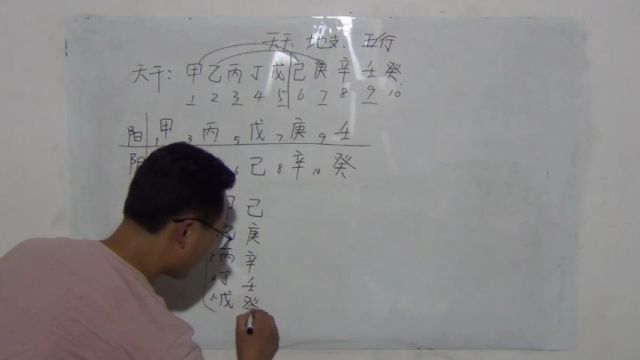 天干、地支、五行
天干：甲乙丙丁戊己庚辛壬癸
1 2 3 4 5 6 7 8 9 10
阳 1甲 3丙 5戊 7庚 9壬
阴 6己 8辛 10癸
甲己
乙庚
丙辛
丁壬
戊癸